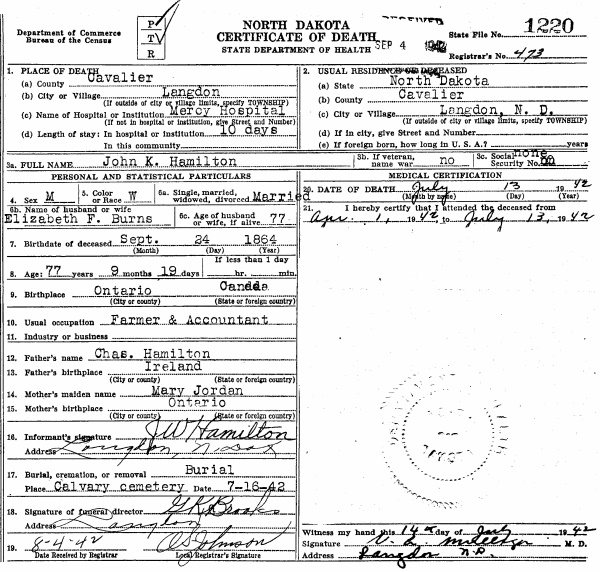 Department of Commerce
Bureau of the Census
P
T
V
R
NORTH DAKOTA
CERTIFICATE OF DEATH
STATE DEPARTMENT OF HEALTH
RECEIVED
SEP 4 1942
State File No. 1220
Registrar's No. 473
1. PLACE OF DEATH
(a) County Cavalier
(b) City or Village Langdon
(If outside of city or village limits, specify TOWNSHIP)
(c) Name of Hospital or Institution Mercy Hospital
(If not in hospital or institution, give Street and Number)
(d) Length of stay: In hospital or Institution 10 days
In this community
2. USUAL RESIDENCE OF DECEASED
(a) State North Dakota
(b) County Cavalier
(c) City or Village Langdon, N. D.
(If outside of city or village limits, specify TOWNSHIP)
(d) If in city, give Street and Number
(e) If foreign born, how long in U. S. A.? years
3a. FULL NAME John K. Hamilton
3b. If veteran, name war no
3c. Social Security No. none
PERSONAL AND STATISTICAL PARTICULARS
4. Sex M
5. Color or Race W
6a. Single, married, widowed, divorced Married
6b. Name of husband or wife Elizabeth F. Burns
6c. Age of husband or wife, if alive 77
7. Birthdate of deceased Sept. 24 1864
(Month) (Day) (Year)
8. Age: 77 years 9 months 19 days
If less than 1 day
hr. min.
9. Birthplace Ontario Canada
(City or county) (State or foreign country)
10. Usual occupation Farmer & Accountant
11. Industry or business
12. Father's name Chas. Hamilton
13. Father's birthplace Ireland
(City or county) (State or foreign country)
14. Mother's maiden name Mary Jordan
15. Mother's birthplace Ontario
(City or county) (State or foreign country)
16. Informant's signature J W Hamilton
Address Langdon, N. Dak
17. Burial, cremation, or removal Burial
Place Calvary cemetery Date 7-16-42
18. Signature of funeral director G K Brooks
Address Langdon
19. 8-4-42
Date Received by Registrar Local Registrar's Signature
MEDICAL CERTIFICATION
20. DATE OF DEATH July 13 1942
(Month by name) (Day) (Year)
21. I hereby certify that I attended the deceased from
Apr. 1, 1942 to July 13, 1942
Witness my hand this 14th day of July 1942
Signature M. D.
Address Langdon N.D.